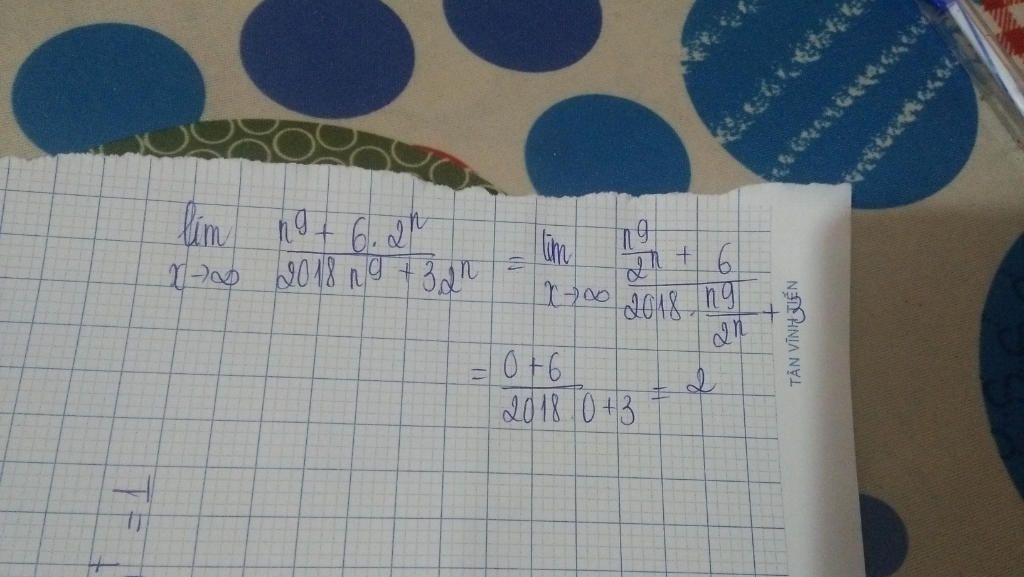 lim n⁹ + 6.2ⁿ / 2018 n⁹ + 3.2ⁿ = lim n⁹/2ⁿ + 6 / 2018 . n⁹/2ⁿ + 3
x→∞ x→∞
= 0 + 6 / 2018.0 + 3 = 2
= 1
TÂN VĨNH TIẾN